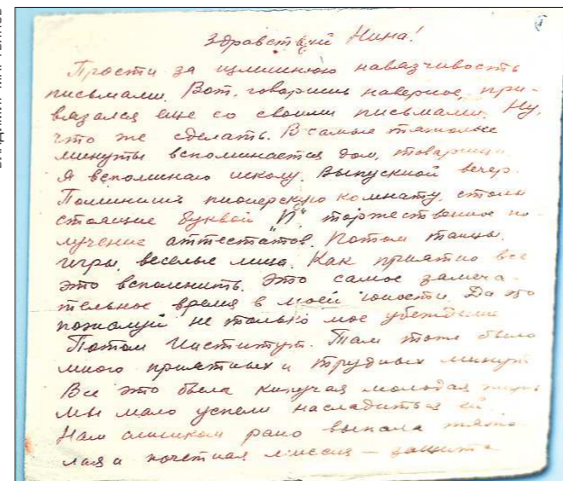 Здравствуй Нина!
Прости за излишнюю навязчивость
письмами. Вот, говоришь наверное, при-
вязался еще со своими письмами. Ну,
что же сделать. В самые тяжелые
минуты вспоминается дом, товарищи.
Я вспоминаю школу. Выпускной вечер.
Помнишь пионерскую комнату, столы
стоящие буквой "П", торжественное по-
лучение аттестатов. Потом танцы,
игры, веселые лица. Как приятно все
это вспомнить. Это самое замеча-
тельное время в моей юности. Да это
пожалуй не только мое убеждение
Потом Институт. Там тоже было
много приятных и трудных минут
Все это была кипучая молодая жизнь
Мы мало успели насладиться ей.
Нам слишком рано выпала тяже-
лая и почетная миссия – защита